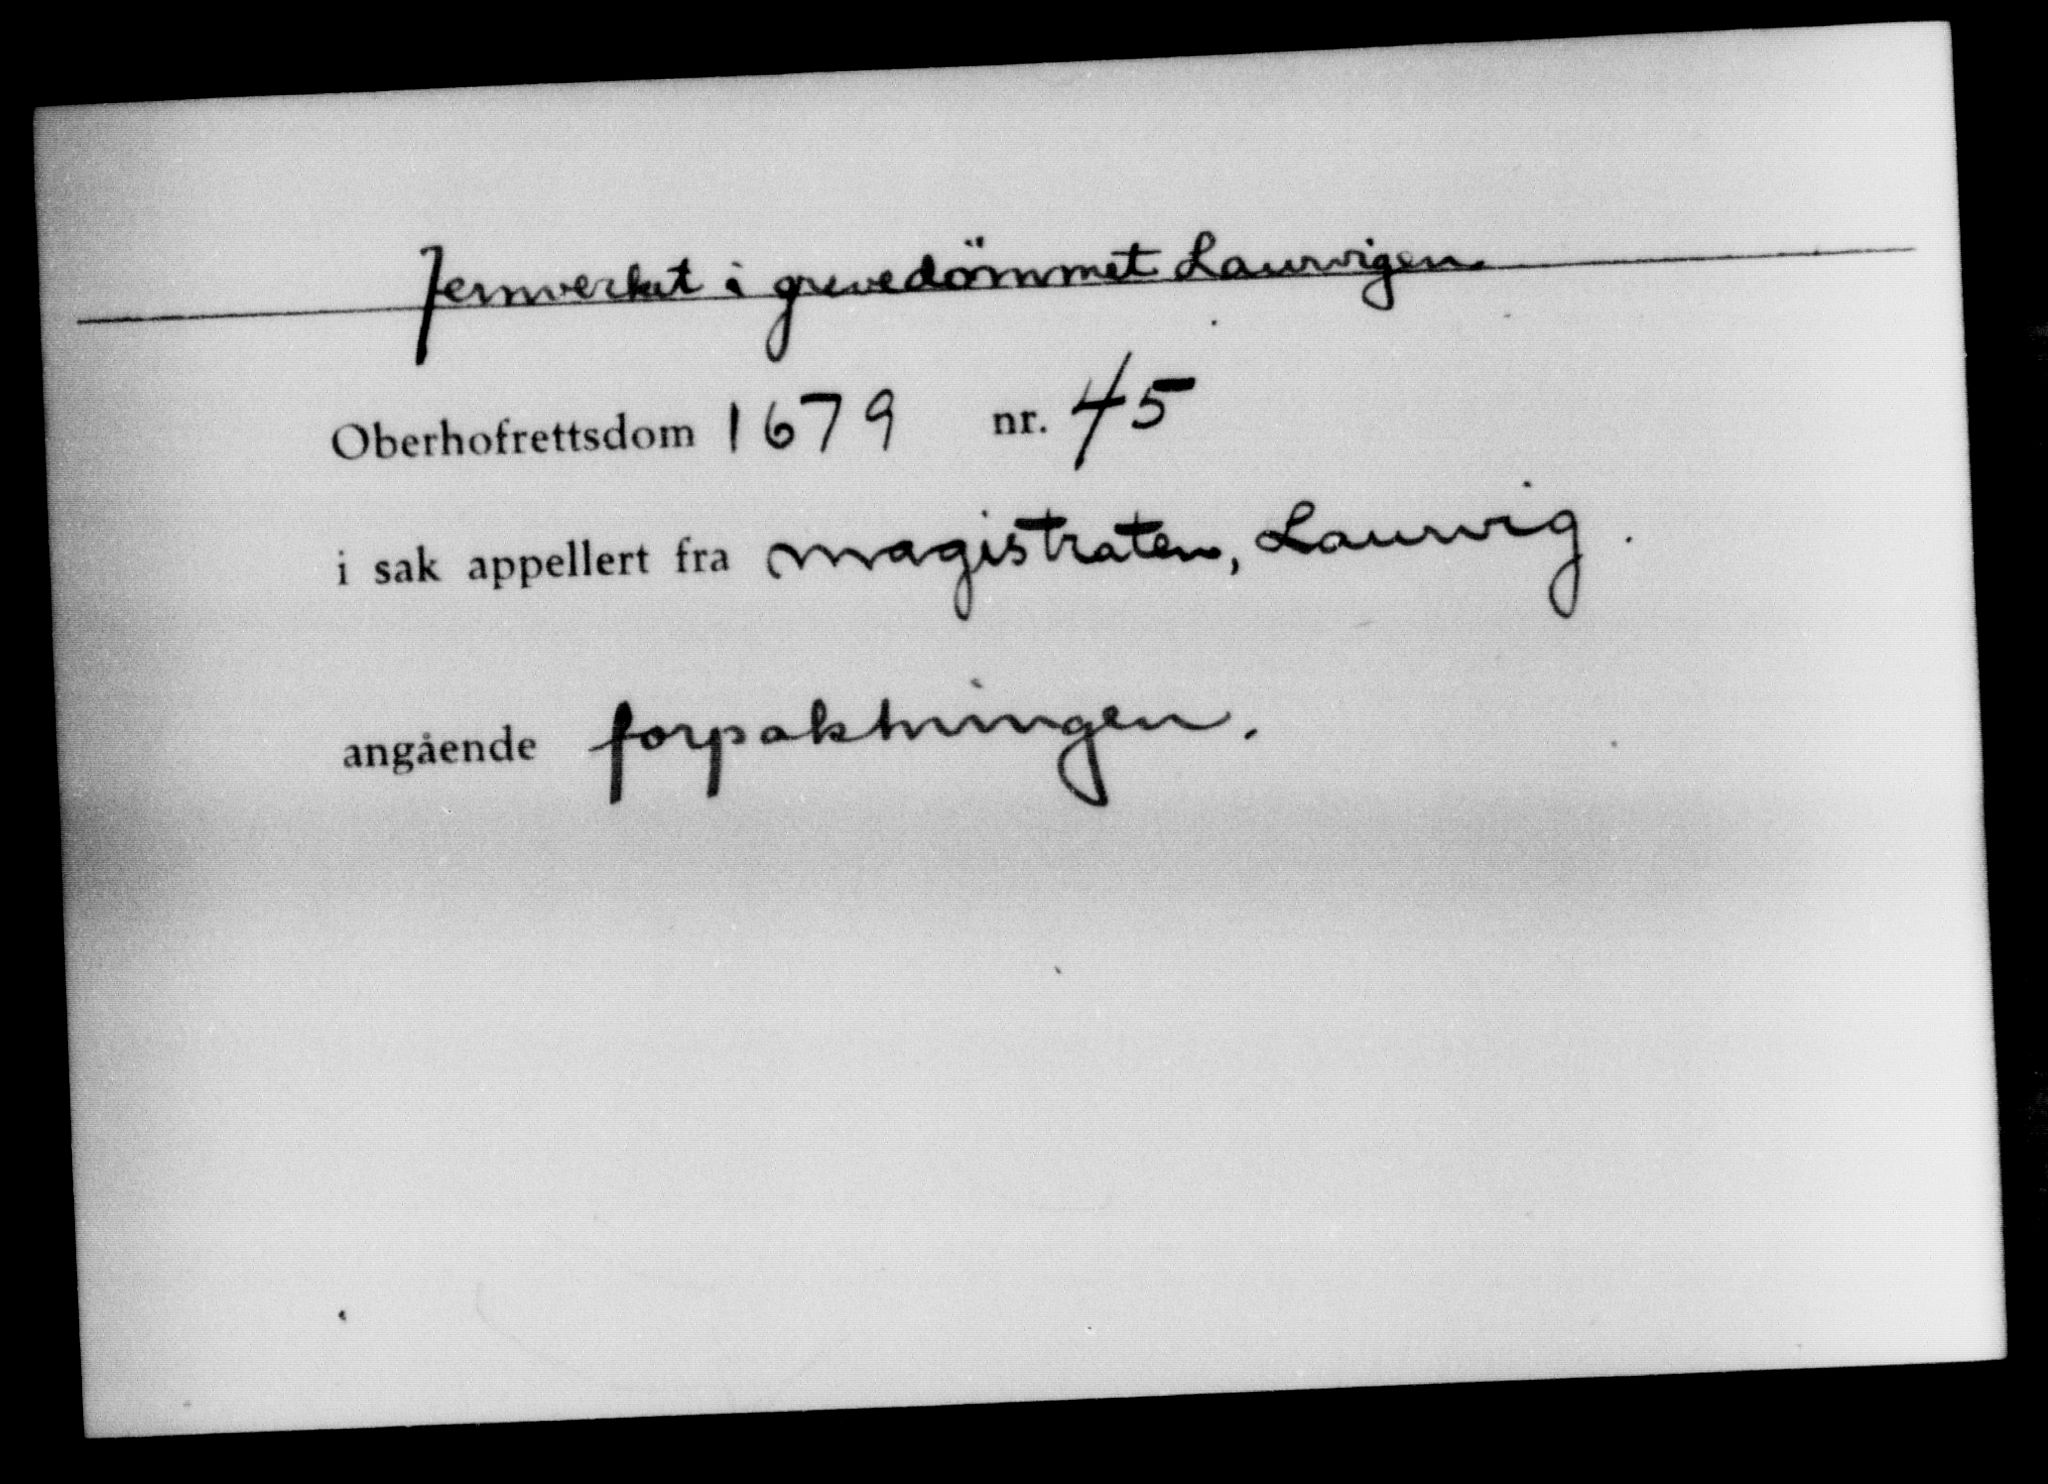 Jernverket i grevedömmet Laurvigen.
Oberhofrettsdom 1679 nr. 45
i sak appellert fra magistraten, Laurvig.
angående forpaktningen.